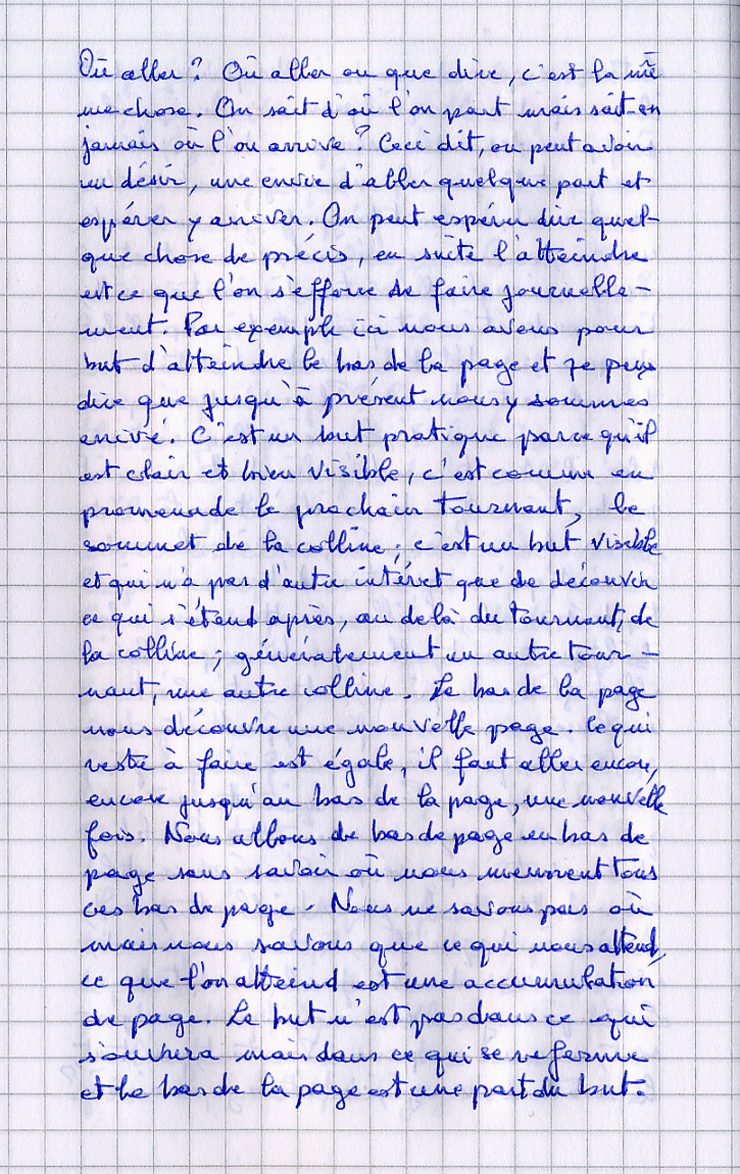 Où aller? Où aller ou que dire, c'est la mê
me chose. On sait d'où l'on part mais sait-on
jamais où l'on arrive? Ceci dit, on peut avoir
un désir, une envie d'aller quelque part et
espérer y arriver. On peut espérer dire quel-
que chose de précis, en suite l'atteindre
est ce que l'on s'efforce de faire journelle-
ment. Par exemple ici nous avons pour
but d'atteindre le bas de la page et je peux
dire que jusqu'à présent nous y sommes
arrivé. C'est un but pratique parce qu'il
est clair et bien visible, c'est comme en
promenade le prochain tournant, le
sommet de la colline; c'est un but visible
et qui n'a pas d'autre intéret que de découvrir
ce qui s'étend après, au delà du tournant, de
la colline; généralement un autre tour-
nant, une autre colline. Le bas de la page
nous découvre une nouvelle page. Ce qui
reste à faire est égale, il faut aller encore,
encore jusqu'au bas de la page, une nouvelle
fois. Nous allons de bas de page en bas de
page sans savoir où nous mennent tous
ces bas de page. Nous ne savons pas où
mais nous savons que ce qui nous attend,
ce que l'on atteind est une accumulation
de page. Le but n'est pas dans ce qui
s'ouvrira mais dans ce qui se referme
et le bas de la page est une part du but.